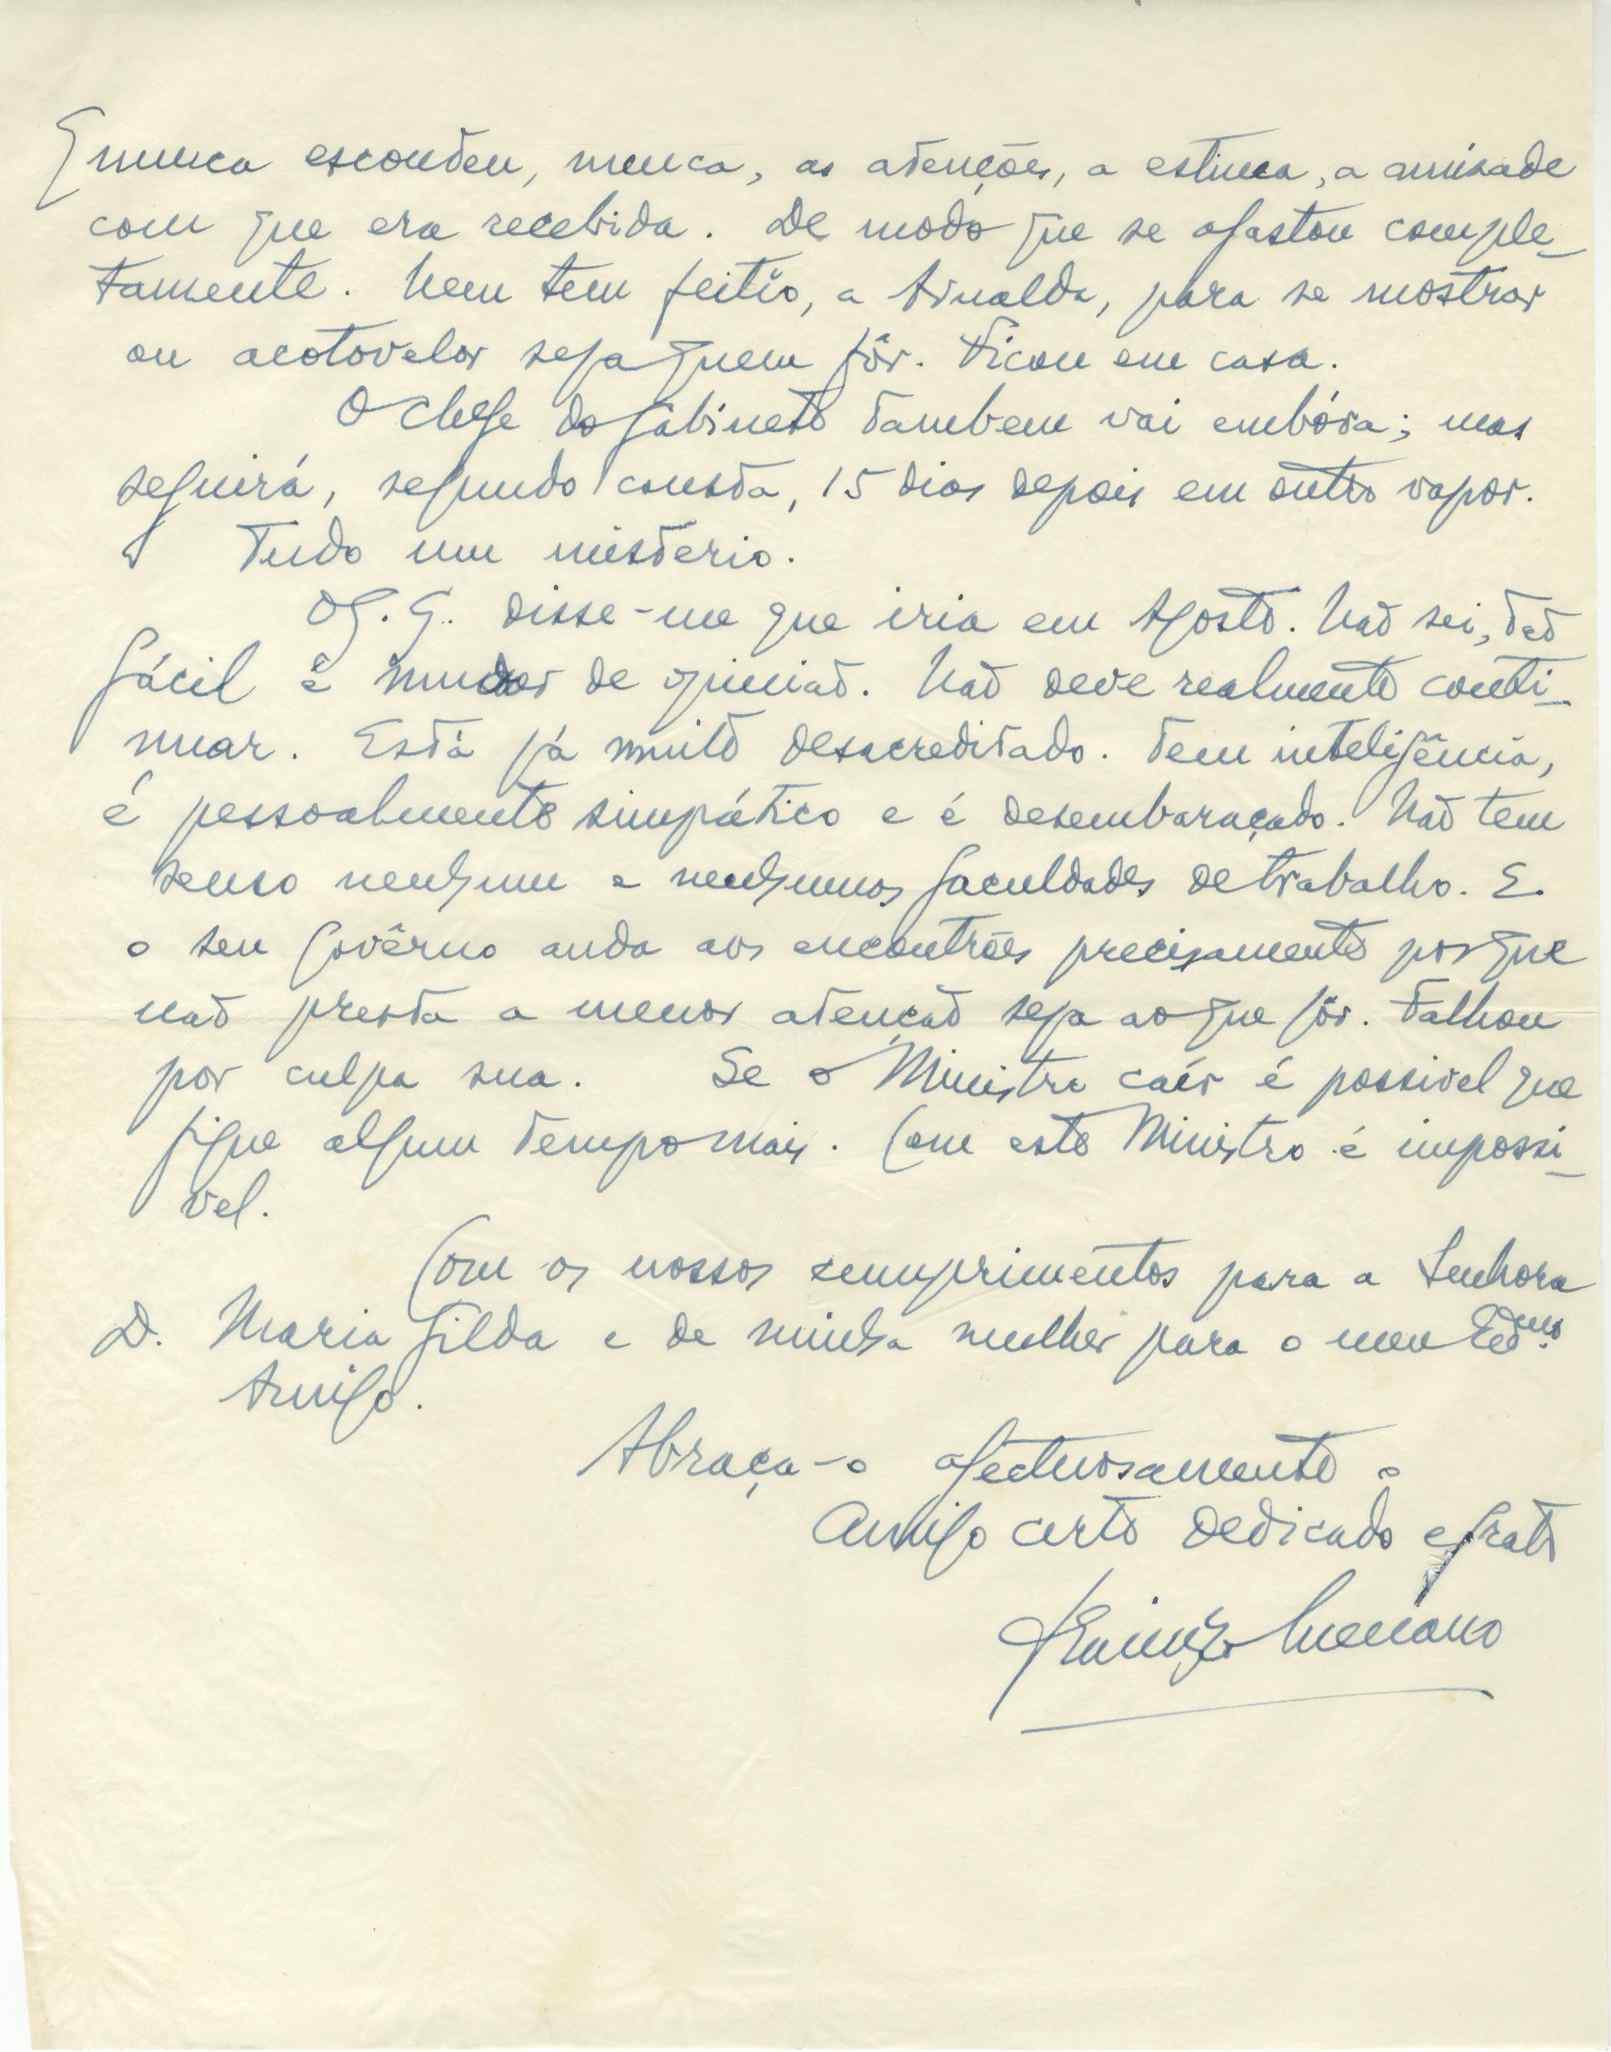 E nunca escondeu, nunca, as atenções, a estima, a amisade
com que era recebida. De modo que se afastou comple-
tamente. Nem tem feitio, a Arnalda, para se mostrar
ou acotovelar seja quem fôr. Ficou em casa.
O chefe do Gabinete tambem vai embóra; mas
seguirá, segundo consta, 15 dias depois em outro vapor.
Tudo um misterio.
O G. G. disse-me que iria em Agosto. Não sei, tão
fácil é mudar de opinião. Não deve realmente conti-
nuar. Está já muito desacreditado. Tem inteligência,
é pessoalmente simpático e é desembaraçado. Não tem
senso nenhum e nenhumas faculdades de trabalho. E
o seu Govêrno anda aos encontrões precisamente porque
não presta a menor atenção seja ao que fôr. Falhou
por culpa sua. Se o Ministro caír é possivel que
fique algum tempo mais. Com este Ministro é impossi-
vel.
Com os nossos cumprimentos para a Senhora
D. Maria Gilda e de minha mulher para o meu
Amigo.
Abraça-o afectuosamente o
Amigo certo dedicado e grato